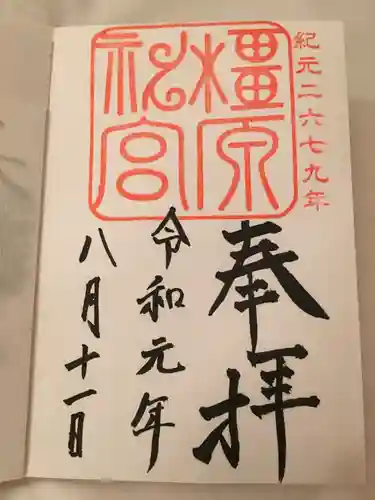 紀元二六七九年
橿原
神宮
奉拝
令和元年
八月十一日